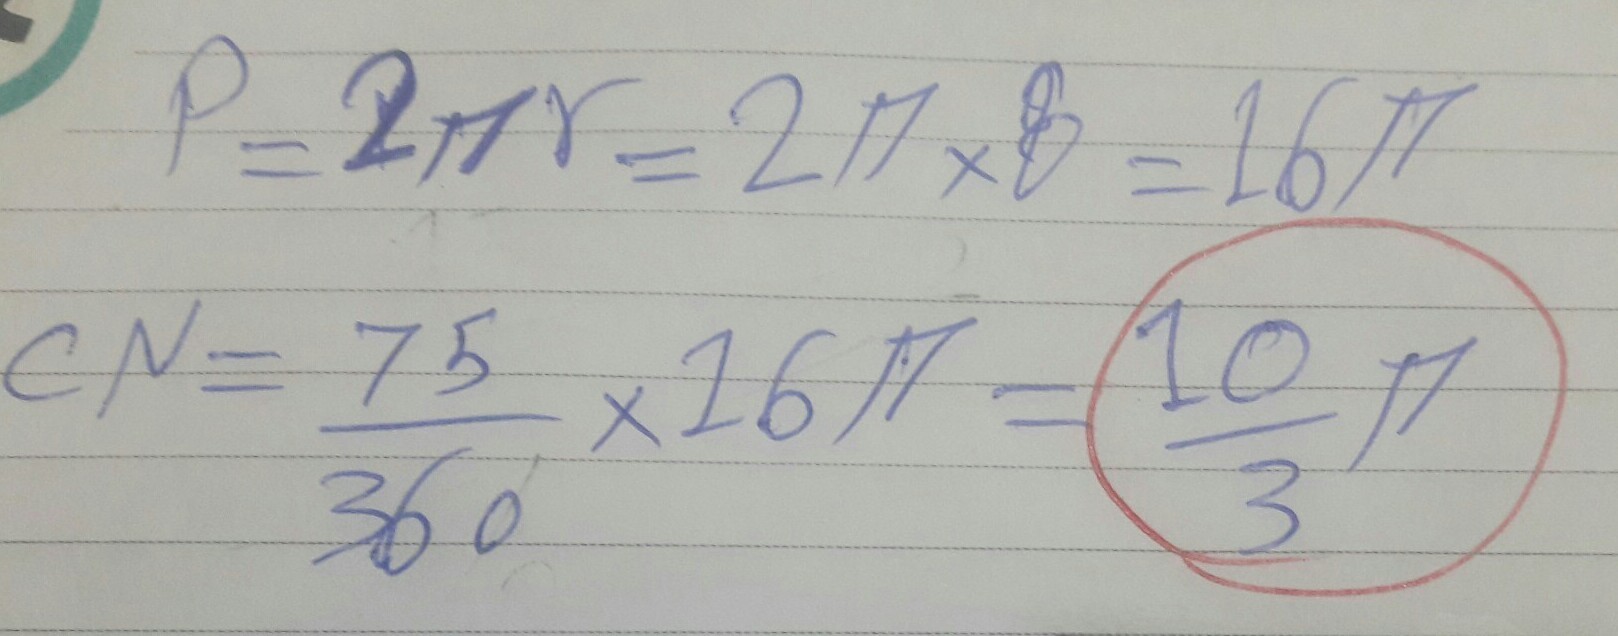 P = 2πr = 2π × 8 = 16π
CN = 75/360 × 16π = 10/3 π